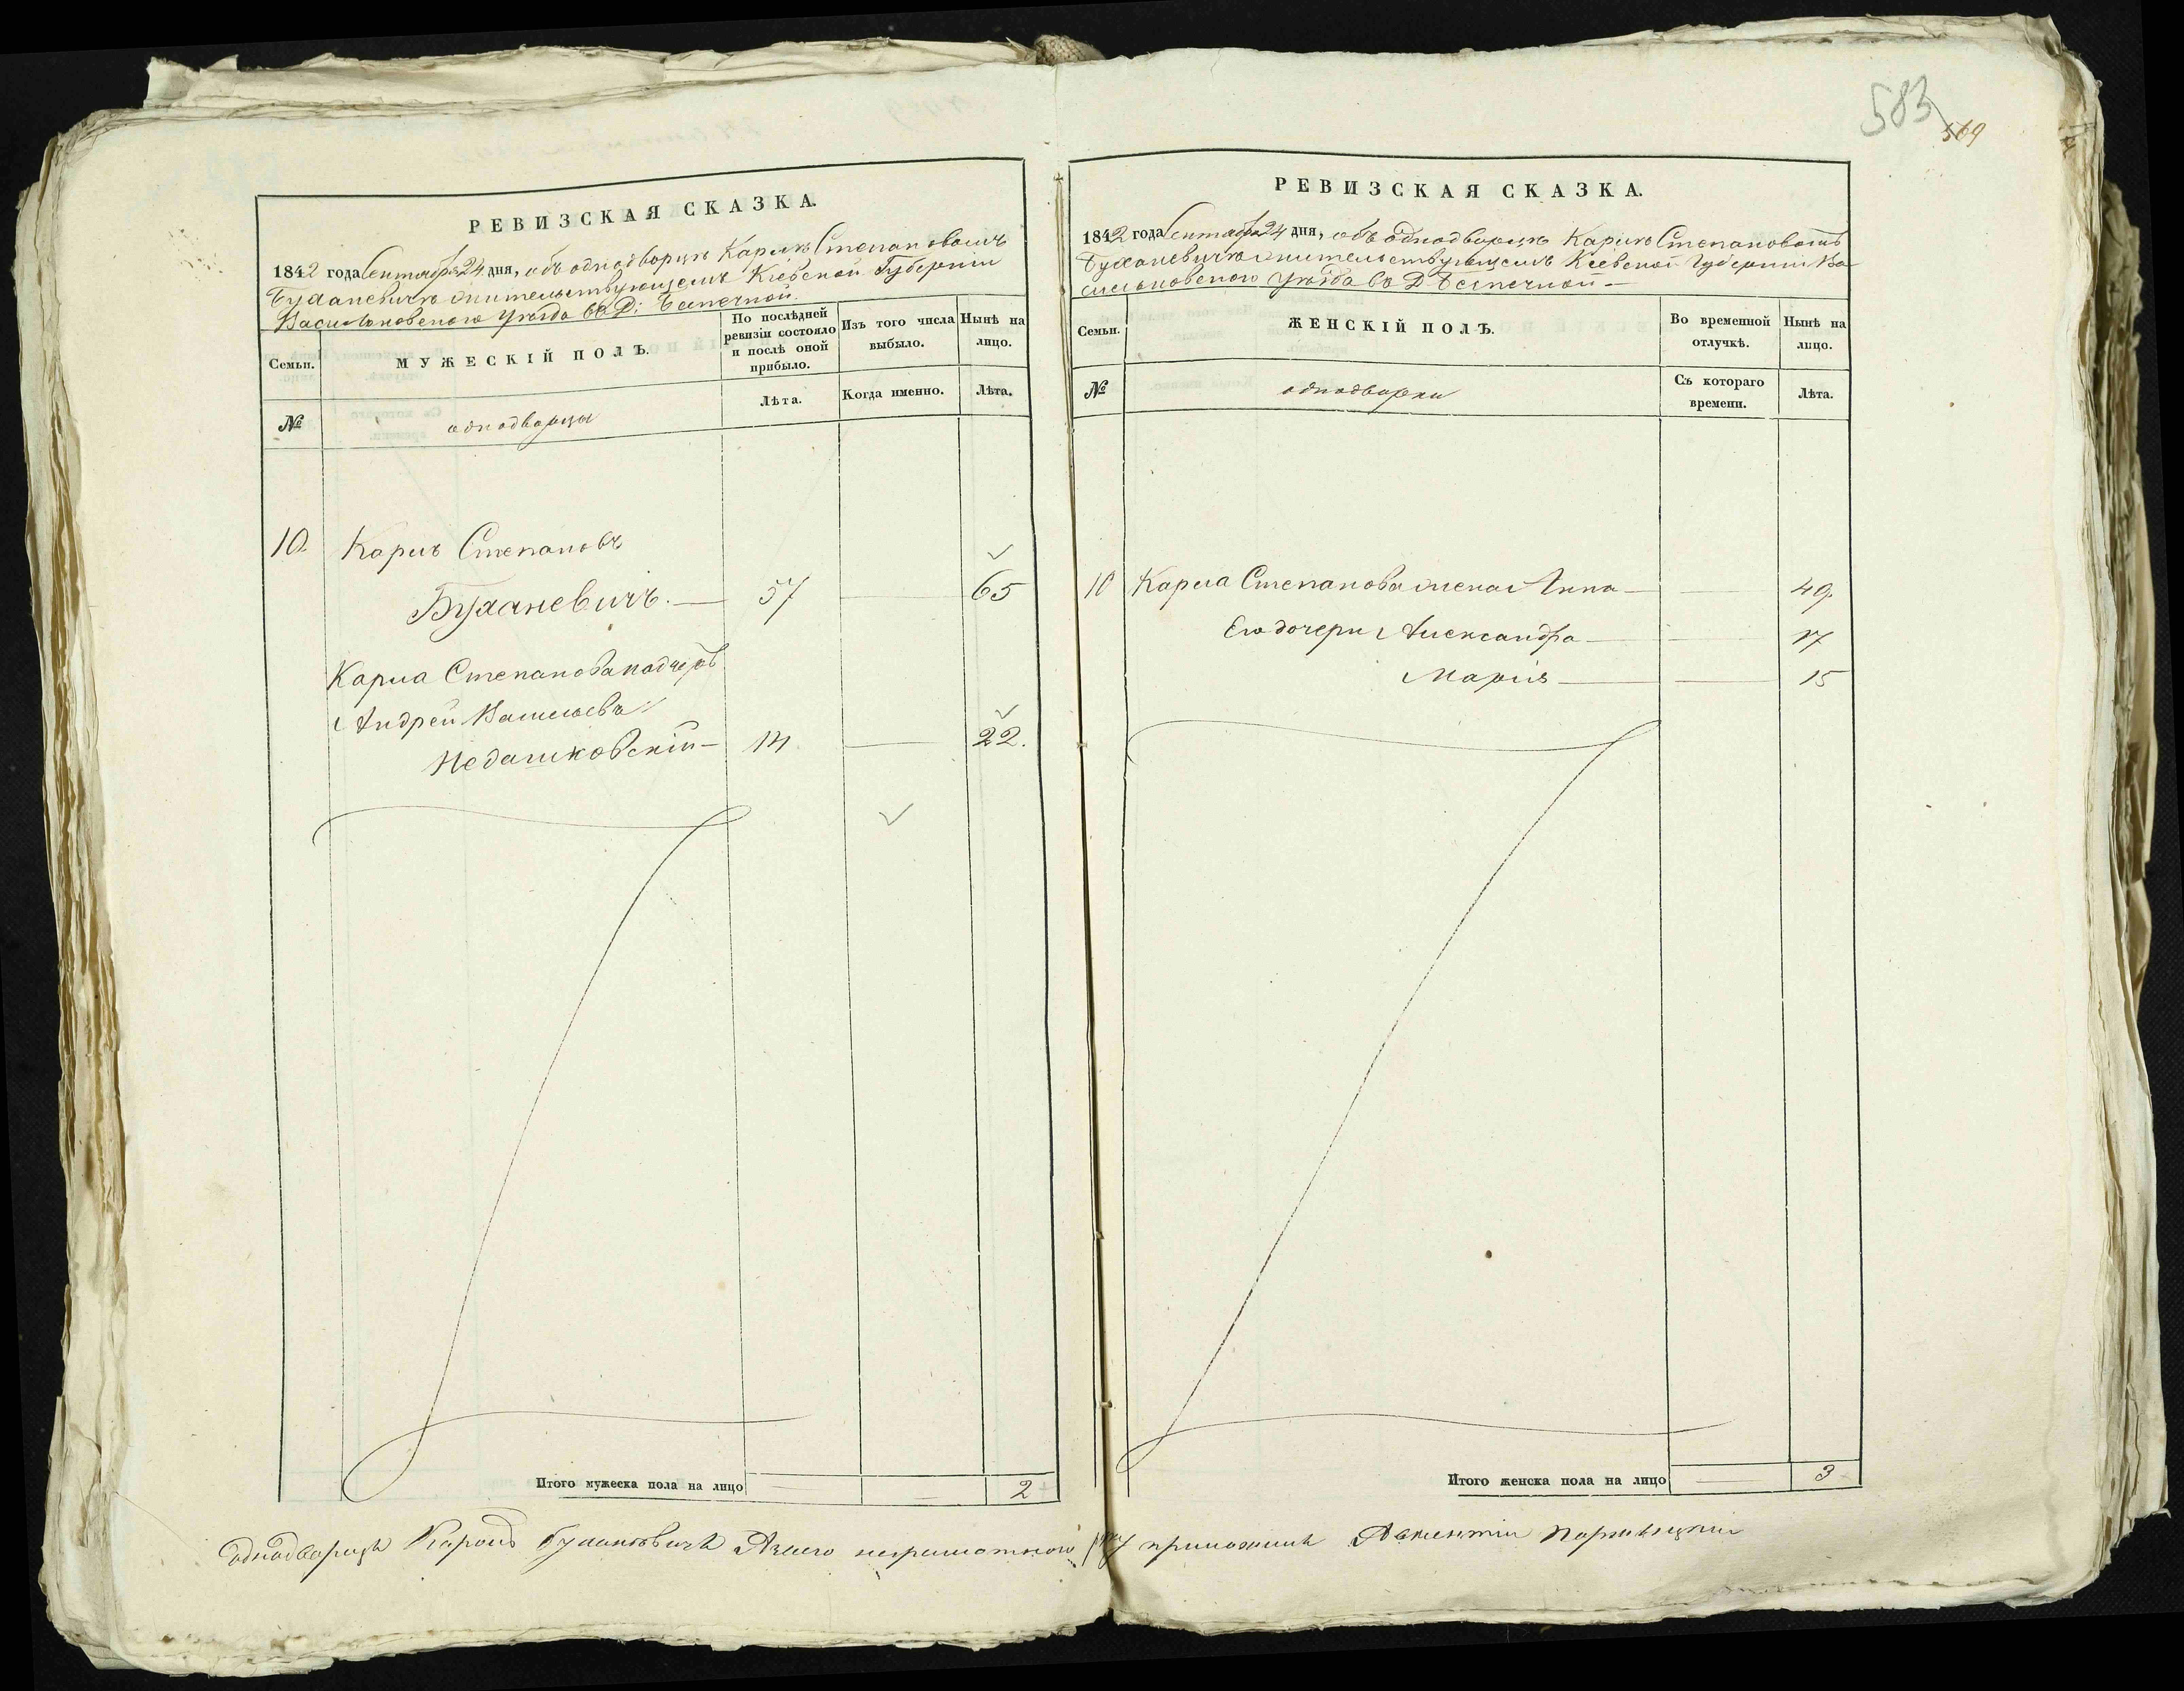 583
569
РЕВИЗСКАЯ СКАЗКА.
1842 года Сентября 24 дня, объ однодворцѣ Карлѣ Степановомъ
Буяаневичѣ жительствующемъ Кіевской Губерніи
Васильковскаго Уѣзда въ Д: Безпечной.
Семьи.
МУЖЕСКІЙ ПОЛЪ.
По послѣдней
ревизіи состояло
и послѣ оной
прибыло.
Изъ того числа
выбыло.
Нынѣ на
лицо.
№
однодворцы
Лѣта.
Когда именно.
Лѣта.
10. Карлъ Степановъ
Буяаневичъ. — 57 — 65
Карла Степанова
Андрей Васильевъ
Недашковскій — 14 — 22.
Итого мужеска пола на лицо — — 2
РЕВИЗСКАЯ СКАЗКА.
1842 года Сентября 24 дня, объ однодворцѣ Карлѣ Степановомъ
Буяаневичѣ жительствующемъ Кіевской Губерніи Ва
сильковскаго Уѣзда въ Д Безпечной —
Семьи.
ЖЕНСКІЙ ПОЛЪ.
Во временной
отлучкѣ.
Нынѣ на
лицо.
№
однодворки
Съ котораго
времени.
Лѣта.
10 Карла Степанова жена Анна — — 49.
Его дочери Александра — — 17
Марія — — 15
Итого женска пола на лицо — 3
однодворецъ Кароль неграмотного руку приложилъ